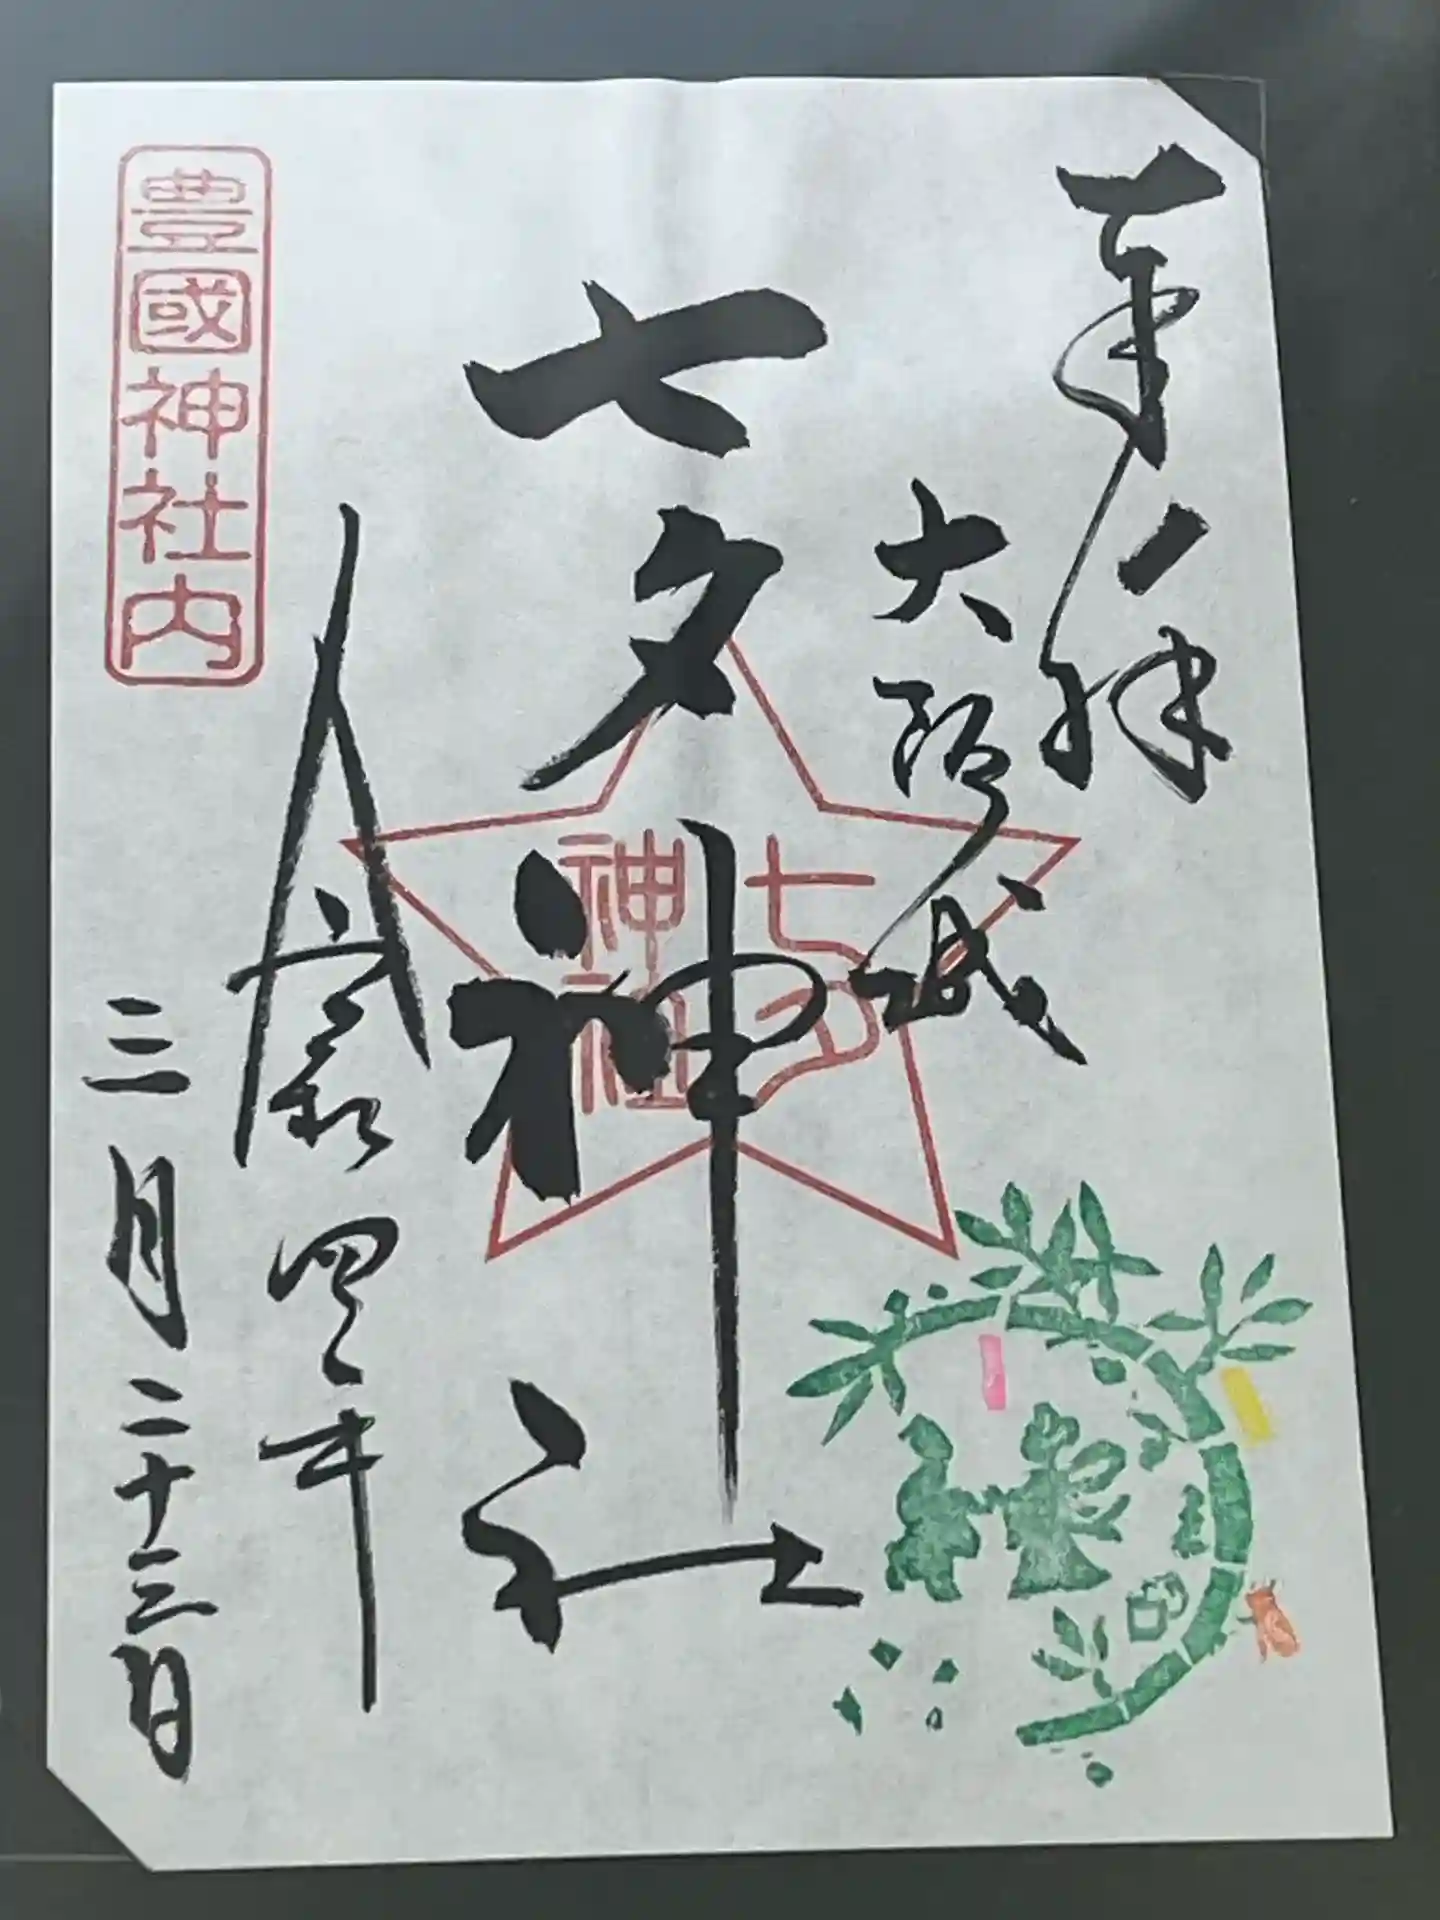 奉拝
大阪城
七夕神社
七夕
神社
令和四年
三月二十三日
豊國神社内